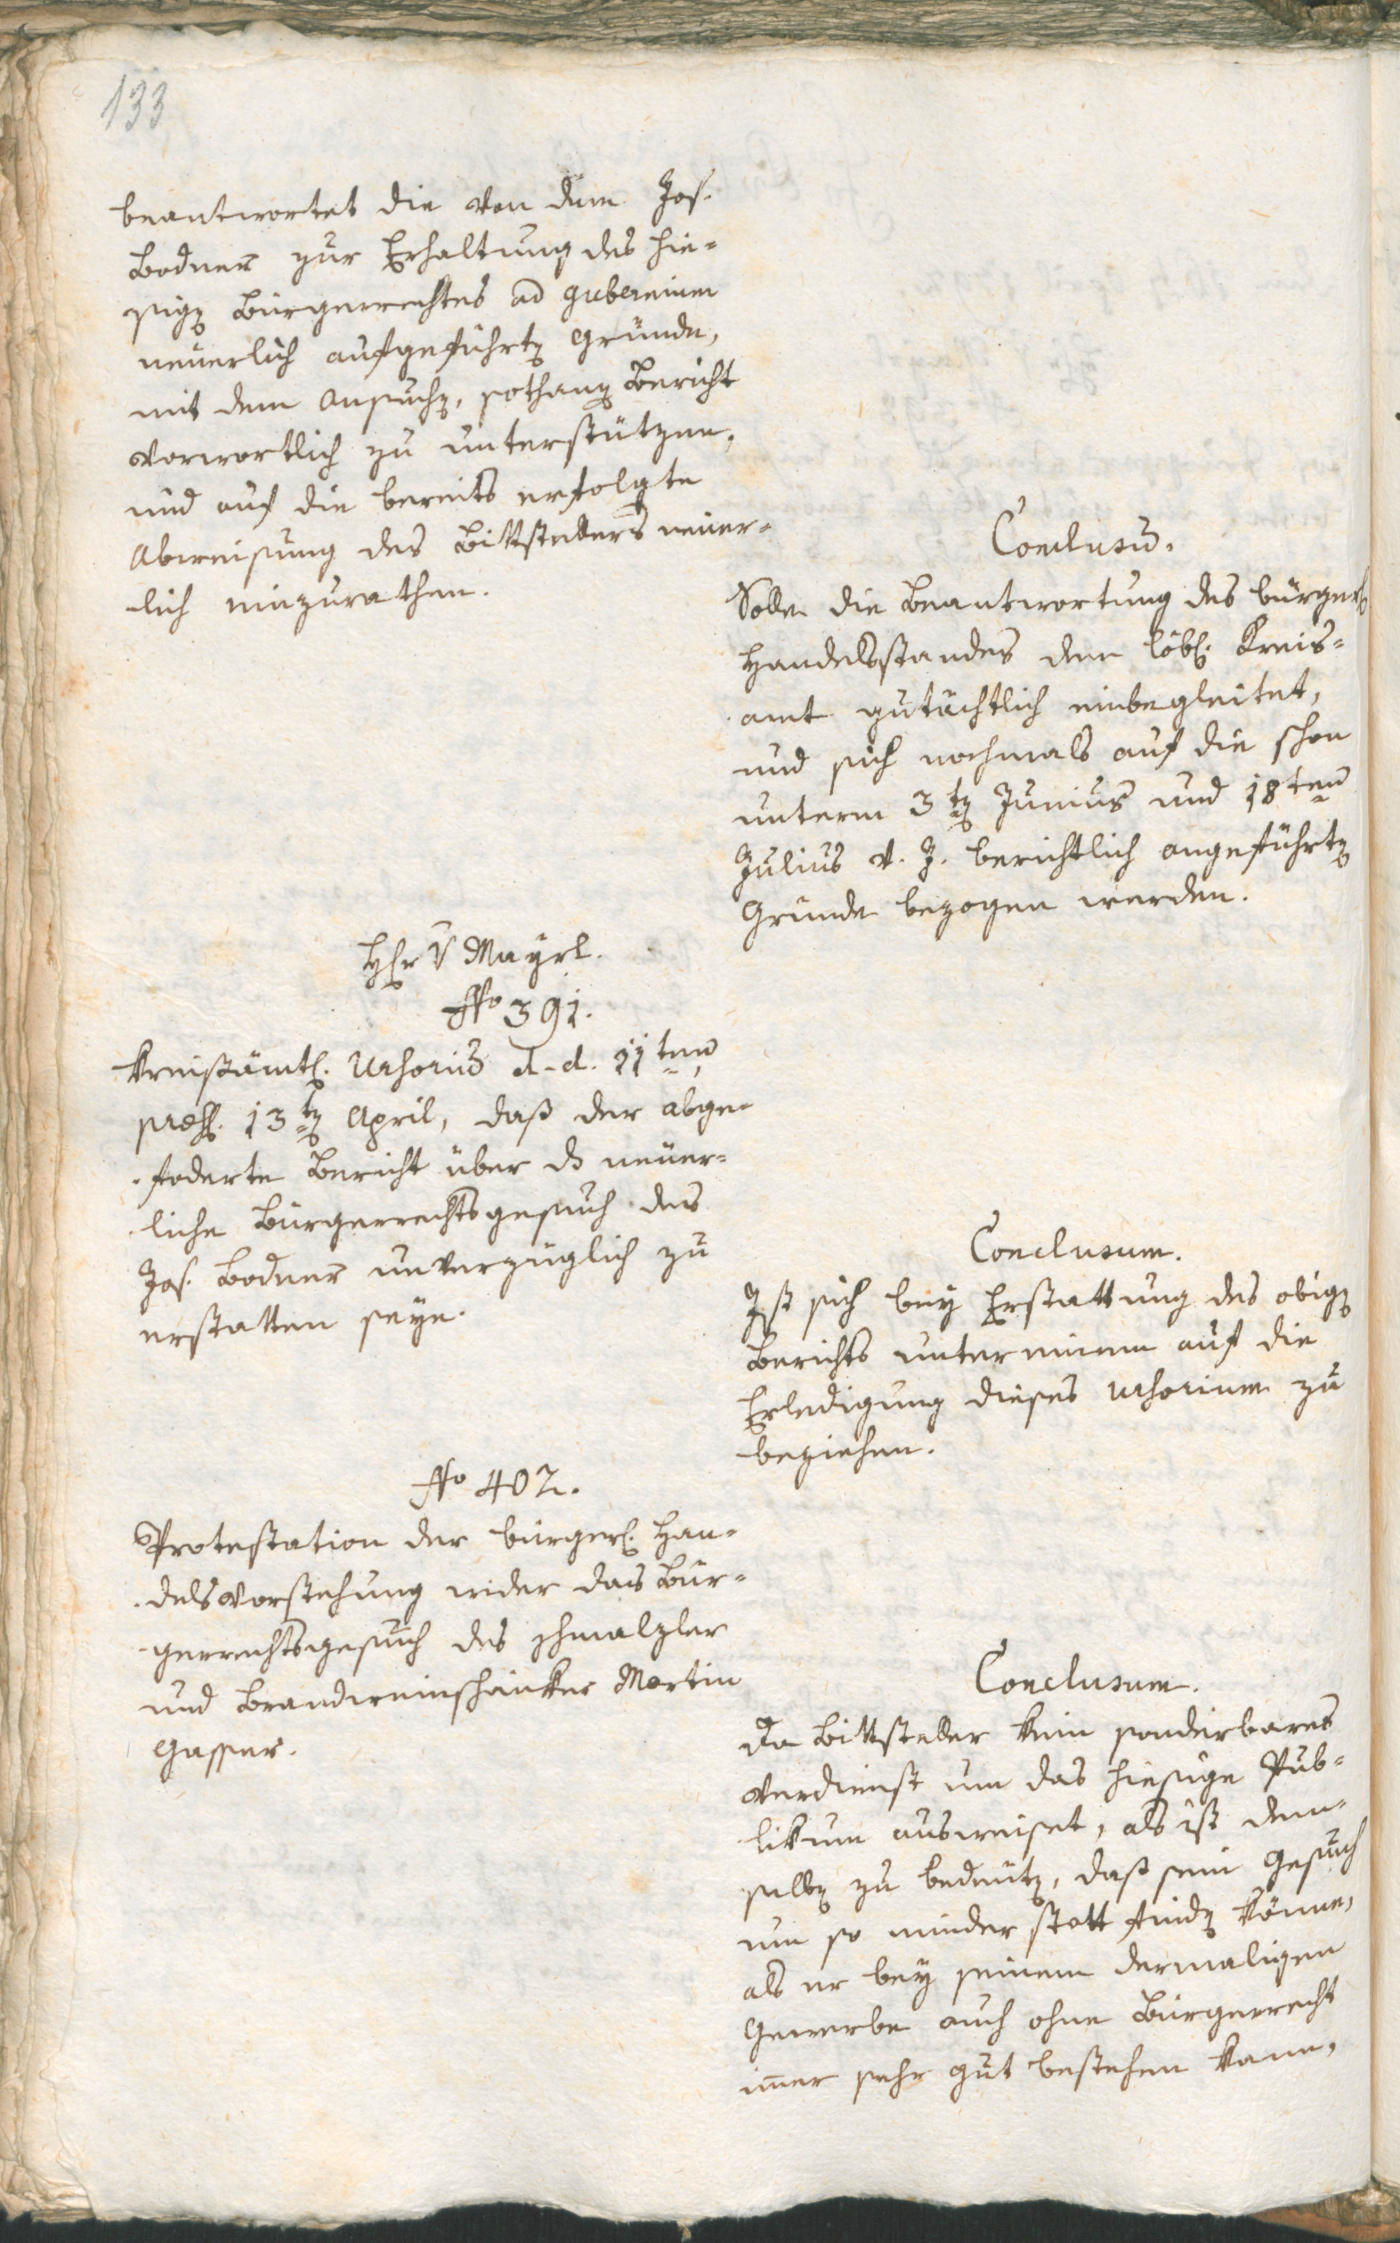 133
beantwortet die von dem Jos.
Bodner zur Erhaltung des hie-
sigen Bürgerrechtes ad gubernium
neuerlich aufgeführten Gründe,
mit dem Ansuchen, sothanen Bericht
vorwortlich zu unterstützen,
und auf die bereits erfolgte
Abweisung des Bittstellers neuer-
lich einzurathen.
Conclusum.
Solle die Beantwortung des bürgerl.
Handelsstandes dem löbl. Kreis-
amt gutächtlich einbegleitet,
und sich nochmals auf die schon
unterm 3ten Junius und 18ten
Julius v. J. berichtlich angeführten
Gründe bezogen werden.
Hr v Mayrl.
No 391.
Kreisämtl. Urhorium d. d. 11ten,
præs. 13ten April, daß der abge-
foderte Bericht über das neuer-
liche Bürgerrechtsgesuch des
Jos. Bodner unverzüglich zu
erstatten seye.
Conclusum.
Ist sich bey Erstattung des obigen
Berichts unter einem auf die
Erledigung dieses Urhorium zu
beziehen.
No 402.
Protestation der bürgerl. Han-
delsvorstehung wider das Bür-
gerrechtsgesuch des Schmalzler
und Brandweinschänker Martin
Gasser.
Conclusum.
Da Bittsteller kein sonderbares
Verdienst um das hiesige Pub-
likum ausweiset, als ist dem-
selben zu bedeuten, daß sein Gesuch
um so minder statt finden könne,
als er bey seinem dermaligen
Gewerbe auch ohne Bürgerrecht
immer sehr gut bestehen kann,